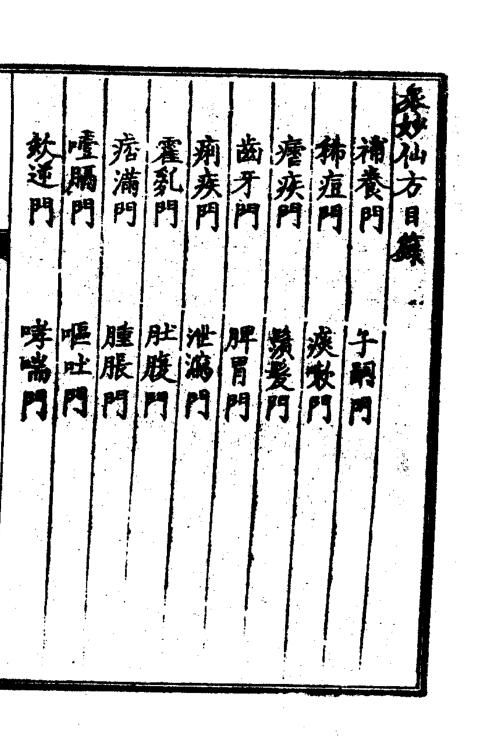 眾妙仙方目錄
補養門 子嗣門
稀痘門 痰嗽門
瘧疾門 鬚髮門
齒牙門 脾胃門
痢疾門 泄瀉門
霍乱門 肚腹門
痞滿門 腫脹門
噎膈門 嘔吐門
欬逆門 哮喘門